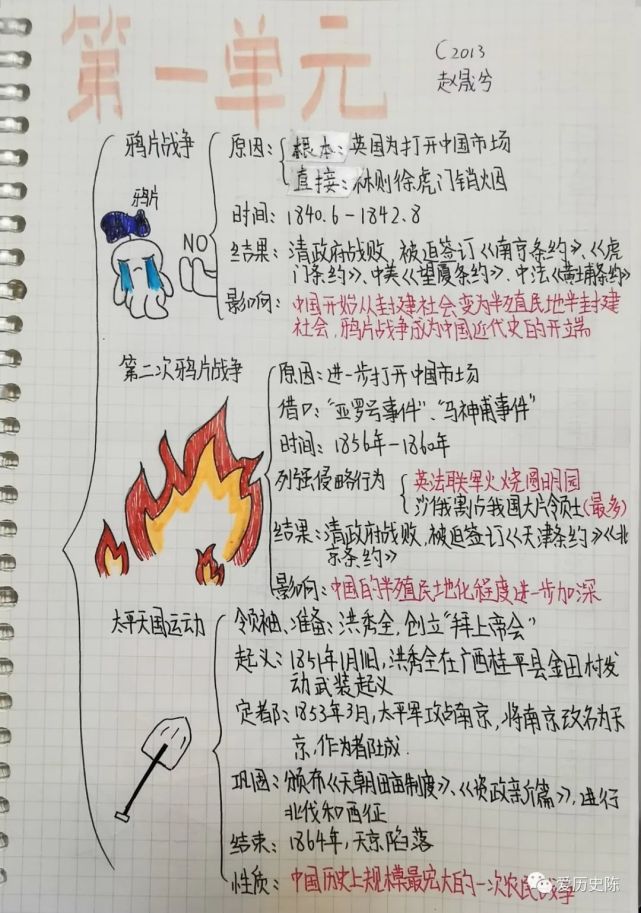 第一单元
C2013
赵晟兮
鸦片战争
鸦片
NO
原因：
根本：英国为打开中国市场
直接：林则徐虎门销烟
时间：1840.6-1842.8
结果：清政府战败，被迫签订《南京条约》、《虎
门条约》、中美《望厦条约》、中法《黄埔条约》
影响：中国开始从封建社会变为半殖民地半封建
社会，鸦片战争成为中国近代史的开端
第二次鸦片战争
原因：进一步打开中国市场
借口："亚罗号事件"、"马神甫事件"
时间：1856年-1860年
列强侵略行为
英法联军火烧圆明园
沙俄割占我国大片领土(最多)
结果：清政府战败，被迫签订《天津条约》《北
京条约》
影响：中国的半殖民地化程度进一步加深
太平天国运动
领袖、准备：洪秀全，创立"拜上帝会"
起义：1851年1月11日，洪秀全在广西桂平县金田村发
动武装起义
定都：1853年3月，太平军攻占南京，将南京改名为天
京，作为都城.
巩固：颁布《天朝田亩制度》、《资政新篇》，进行
北伐和西征
结束：1864年，天京陷落
性质：中国历史上规模最宏大的一次农民战争
爱历史陈